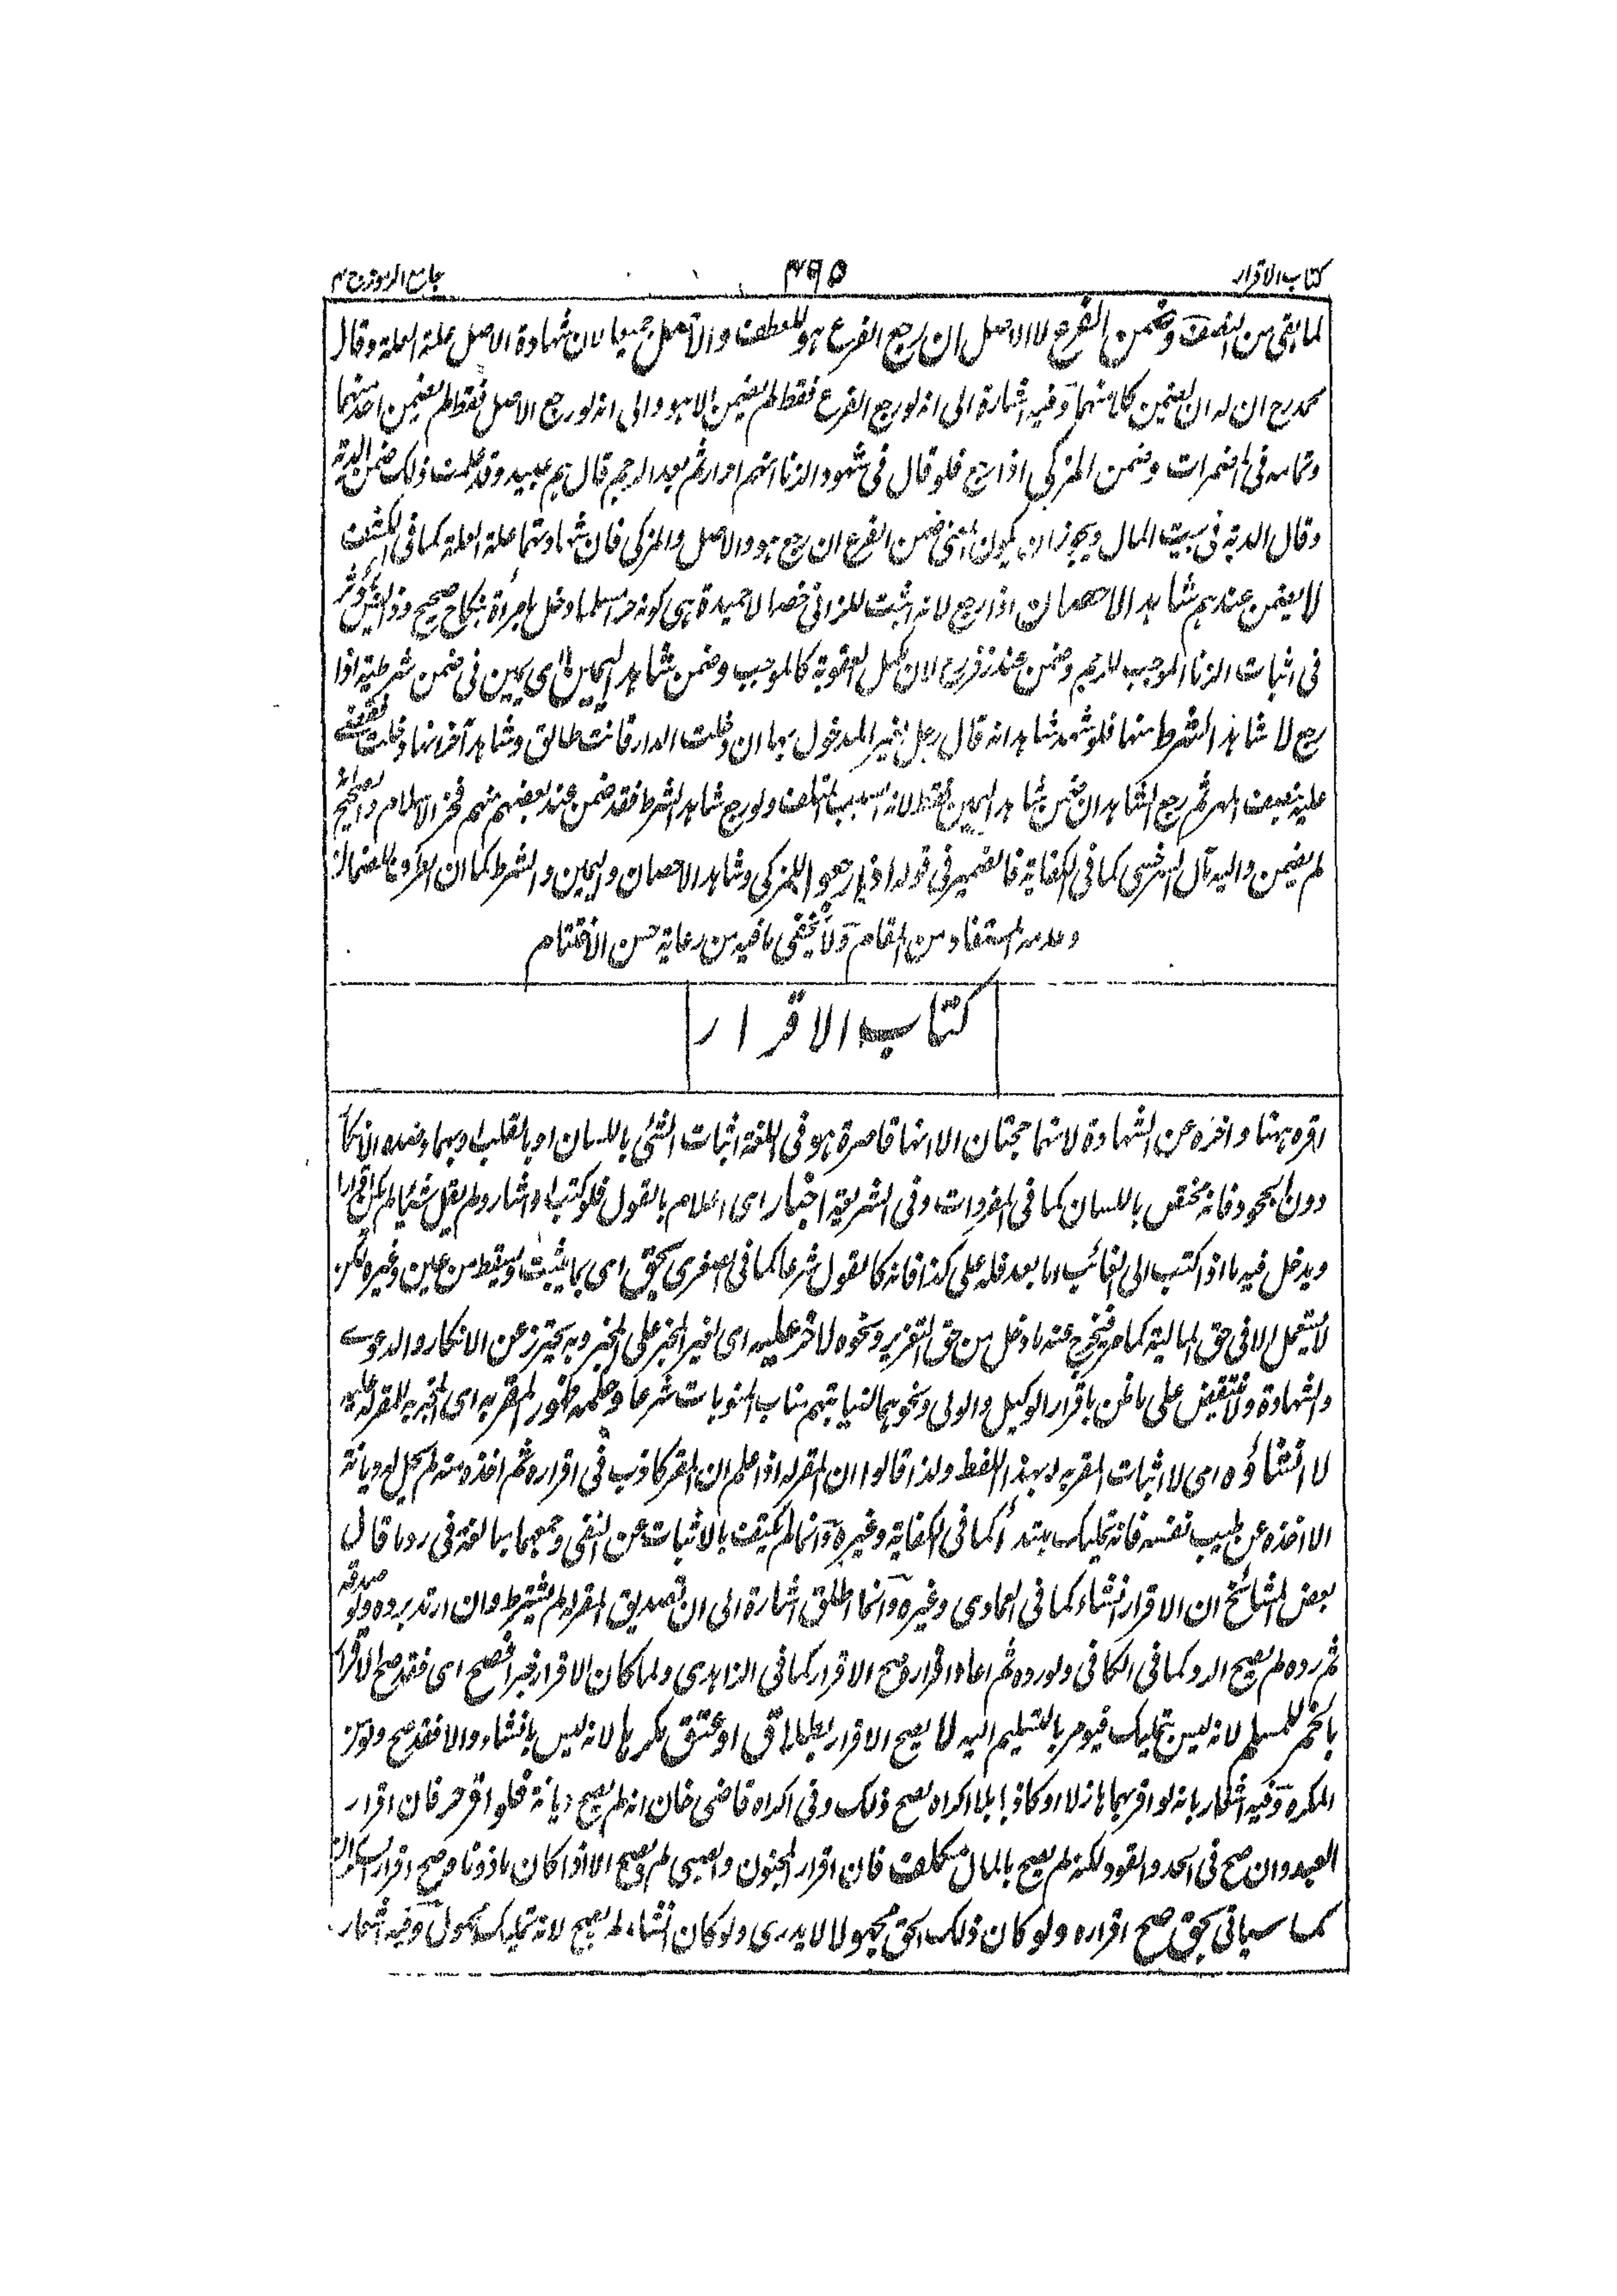 كتاب الاقرار ٣٩٥ جامع الرموز ج ٢
لما بقى من النصف وضمن الفرع لا الاصل ان رجع الفرع هو للعطف والاصل جميعا لان شهادة الاصل علة العلة وقال
محمد رح ان له ان يضمن كلا منهما وفيه اشارة الى انه لو رجع الفرع فقط لم يضمن الا هو والى انه لو رجع الاصل فقط لم يضمن احد منهما
وتمامه فى المضمرات وضمن المزكى اذا رجع فلو قال فى شهود الزنا انهم احرار ثم بعد الرجم قال هم عبيد وقد علمت ذلك ضمن الدية
وقال الدية فى بيت المال ويجوز ان يكون المعنى ضمن الفرع ان رجع هو والاصل والمزكى فان شهادتهما علة العلة كما فى الكشف
لا يضمن عندهم شاهد الاحصان اذا رجع لانه اثبت للزانى خصالا حميدة هى كونه حرا مسلما دخل بامرأة بنكاح صحيح وذا غير مؤثر
فى اثبات الزنا الموجب للرجم وضمن عند زفر رح لان مكمل العقوبة كالموجب وضمن شاهد اليمين اى يمين فى ضمن شرطية اذا
رجع لا شاهد الشرط منها فلو شهد شاهد انه قال رجل لغير المدخول بها ان دخلت الدار فانت طالق وشاهد آخر انها دخلت فقضى
عليه بنصف المهر ثم رجع الشاهدان ضمن شاهد اليمين فقط لانه السبب للتلف ولو رجع شاهد الشرط فقد ضمن عند بعضهم منهم فخر الاسلام والصحيح انه
لم يضمن واليه مال السرخسى كما فى الكفاية فالضمير فى قوله اذا رجعوا للمزكى وشاهد الاحصان واليمين والشرط كما ان الظروف للضمان
وعدمه المستفاد من المقام ولا يخفى ما فيه من رعاية حسن الاختتام
كتاب الاقرار
اقره بهنا واخره عن الشهادة لانهما حجتان الا انها قاصرة هو فى اللغة اثبات الشئ باللسان او بالقلب او بهما وضده الانكار
دون الجحود فانه مختص باللسان كما فى المفردات وفى الشريعة اخبار اى اعلام بالقول فلو كتب او اشار ولم يقل شيئا لم يكن اقرارا
ويدخل فيه ما اذا كتب الى الغائب اما بعد فله على كذا فانه كالقول شرعا كما فى الصغرى بحق اى بما يثبت ويسقط من عين وغيره لكن
لا يستعمل الا فى حق المالية كما مر فيخرج عنه ما دخل من حق التعزير ونحوه لاخر عليه اى لغير المخبر على المخبر وبه يحترز عن الانكار والدعوى
والشهادة ولا ينتقض على ما ظن باقرار الوكيل والولى ونحوهما لنيابتهم مناب المنوبات شرعا وحكمه ظهور المقر به اى المخبر به للمقر له
لا انشاؤه اى لا اثبات المقر به بهذا اللفظ ولذا قالوا ان المقر له اذا علم ان المقر كاذب فى اقراره ثم اخذه منه لم يحل له ديانة
الا اخذه عن طيب نفسه فانه تمليك مبتدأ كما فى الكفاية وغيره وانما لم يكتف بالاثبات عن النفى وجمعهما مبالغة فى رد ما قال
بعض المشائخ ان الاقرار انشاء كما فى العمادى وغيره وانما اطلق اشارة الى ان تصديق المقر له لم يشترط وان ارتد برده ولو صدقه
ثم رده لم يصح الرد كما فى الكافى ولو رده ثم اعاد اقراره صح الاقرار كما فى الزاهدى ولما كان الاقرار خبرا فصح اى فقد صح الاقرار
بالخمر للمسلم لانه ليس بتمليك فيومر بالتسليم اليه لا يصح الاقرار بطلاق او عتق مكرها لانه ليس بانشاء والا فقد صح ولو من
المكره وفيه اشعار بانه لو اقر بهما هازلا او كاذبا بلا اكراه يصح ذلك وفى اكراه قاضى خان انه لم يصح ديانة فلو اقر حر فان اقرار
العبد وان صح فى الحد والقود لكنه لم يصح بالمال مكلف فان اقرار المجنون والصبى لم يصح الا اذا كان ماذونا وصح اقرار السكران
كما سياتى بحق صح اقراره ولو كان ذلك الحق مجهولا لا يدرى ولو كان انشاء لم يصح لانه تمليك مجهول وفيه اشعار